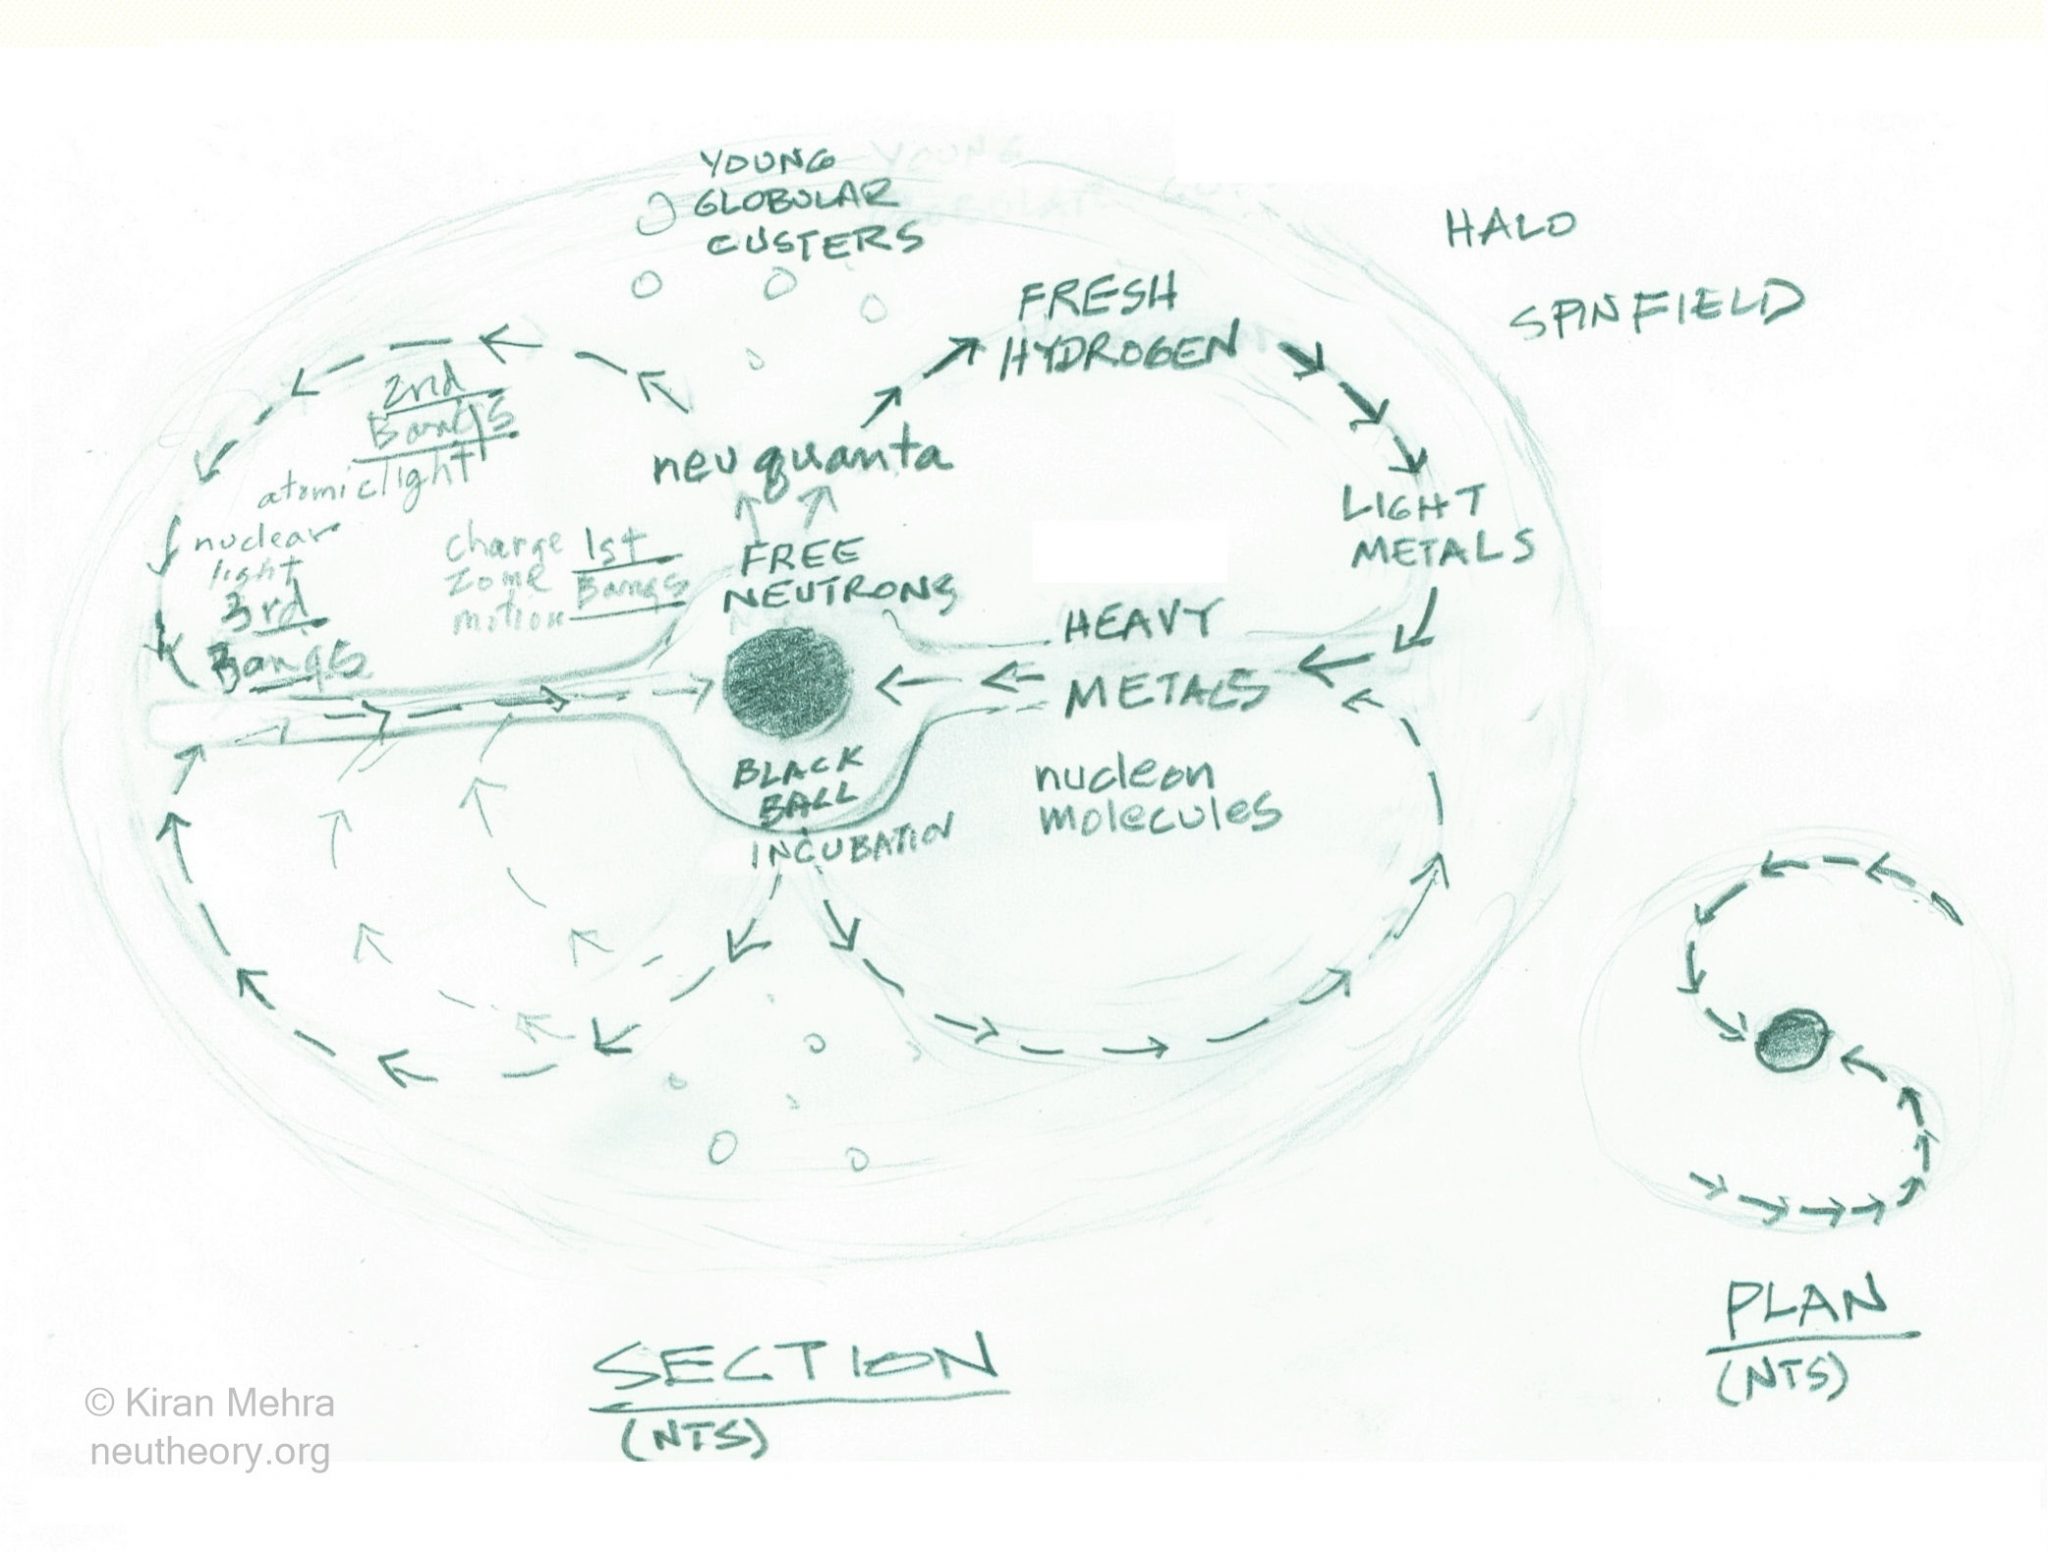 YOUNG
GLOBULAR
CUSTERS
HALO
SPINFIELD
FRESH
HYDROGEN
2nd
Bangs
atomic light
neu quanta
nuclear
light
3rd
Bangs
charge
zone
motion
1st
Bangs
FREE
NEUTRONS
LIGHT
METALS
HEAVY
METALS
BLACK
BALL
INCUBATION
nucleon
molecules
SECTION
(NTS)
PLAN
(NTS)
© Kiran Mehra
neutheory.org